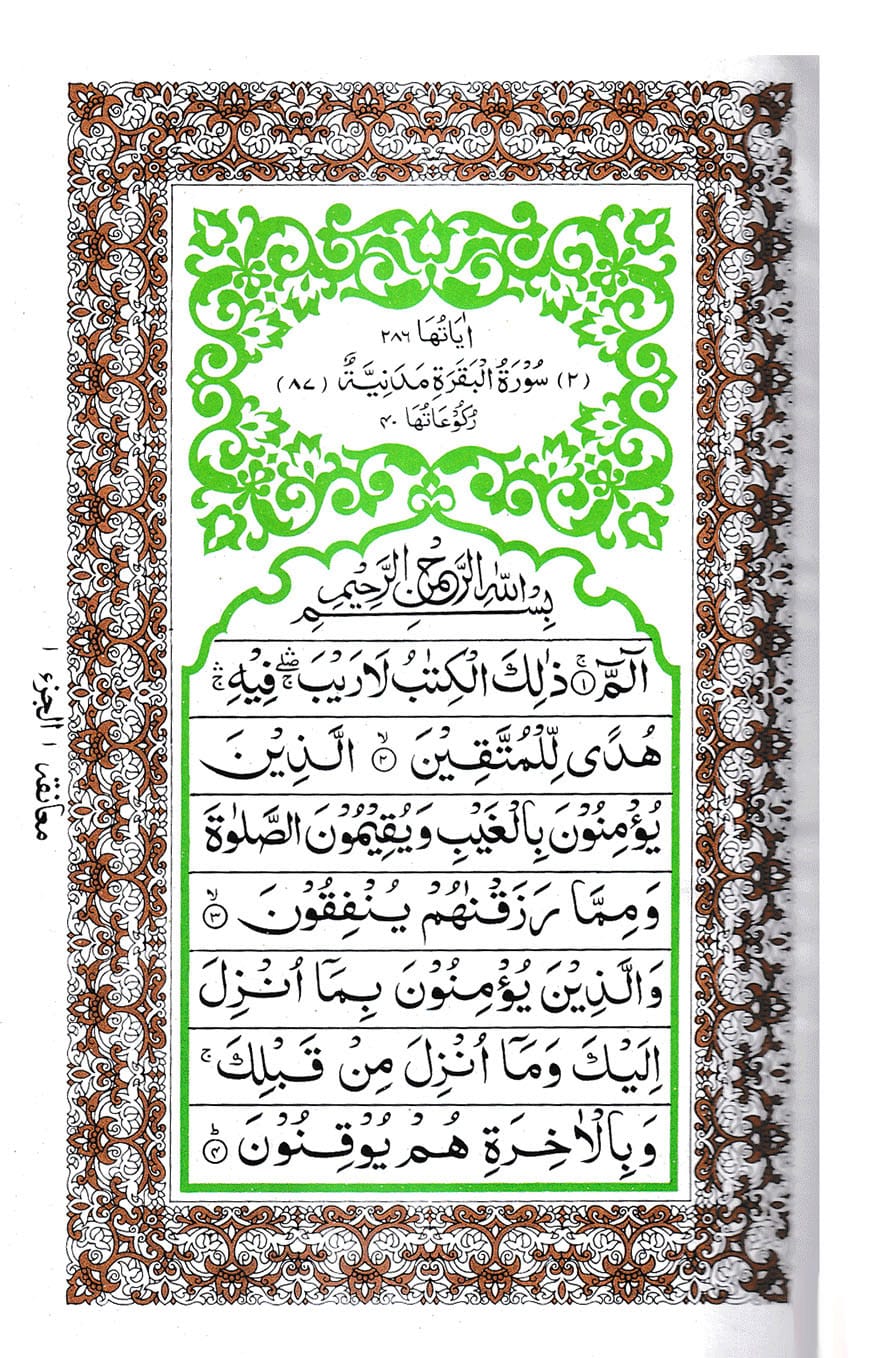 اٰيَاتُهَا ٢٨٦
(٢) سُوْرَةُ الْبَقَرَةِ مَدَنِيَّةٌ (٨٧)
رُكُوْعَاتُهَا ٤٠
بِسْمِ اللّٰهِ الرَّحْمٰنِ الرَّحِيْمِ
الٓمّٓ ۚ ﴿١﴾ ذٰلِكَ الْكِتٰبُ لَا رَيْبَ ۛۖۚ فِيْهِ ۛۚ
هُدًى لِّلْمُتَّقِيْنَ ۙ ﴿٢﴾ الَّذِيْنَ
يُؤْمِنُوْنَ بِالْغَيْبِ وَيُقِيْمُوْنَ الصَّلٰوةَ
وَمِمَّا رَزَقْنٰهُمْ يُنْفِقُوْنَ ۙ ﴿٣﴾
وَالَّذِيْنَ يُؤْمِنُوْنَ بِمَآ اُنْزِلَ
اِلَيْكَ وَمَآ اُنْزِلَ مِنْ قَبْلِكَ ۚ
وَبِالْاٰخِرَةِ هُمْ يُوْقِنُوْنَ ؕ ﴿٤﴾
معانقہ ١ الجزء ١